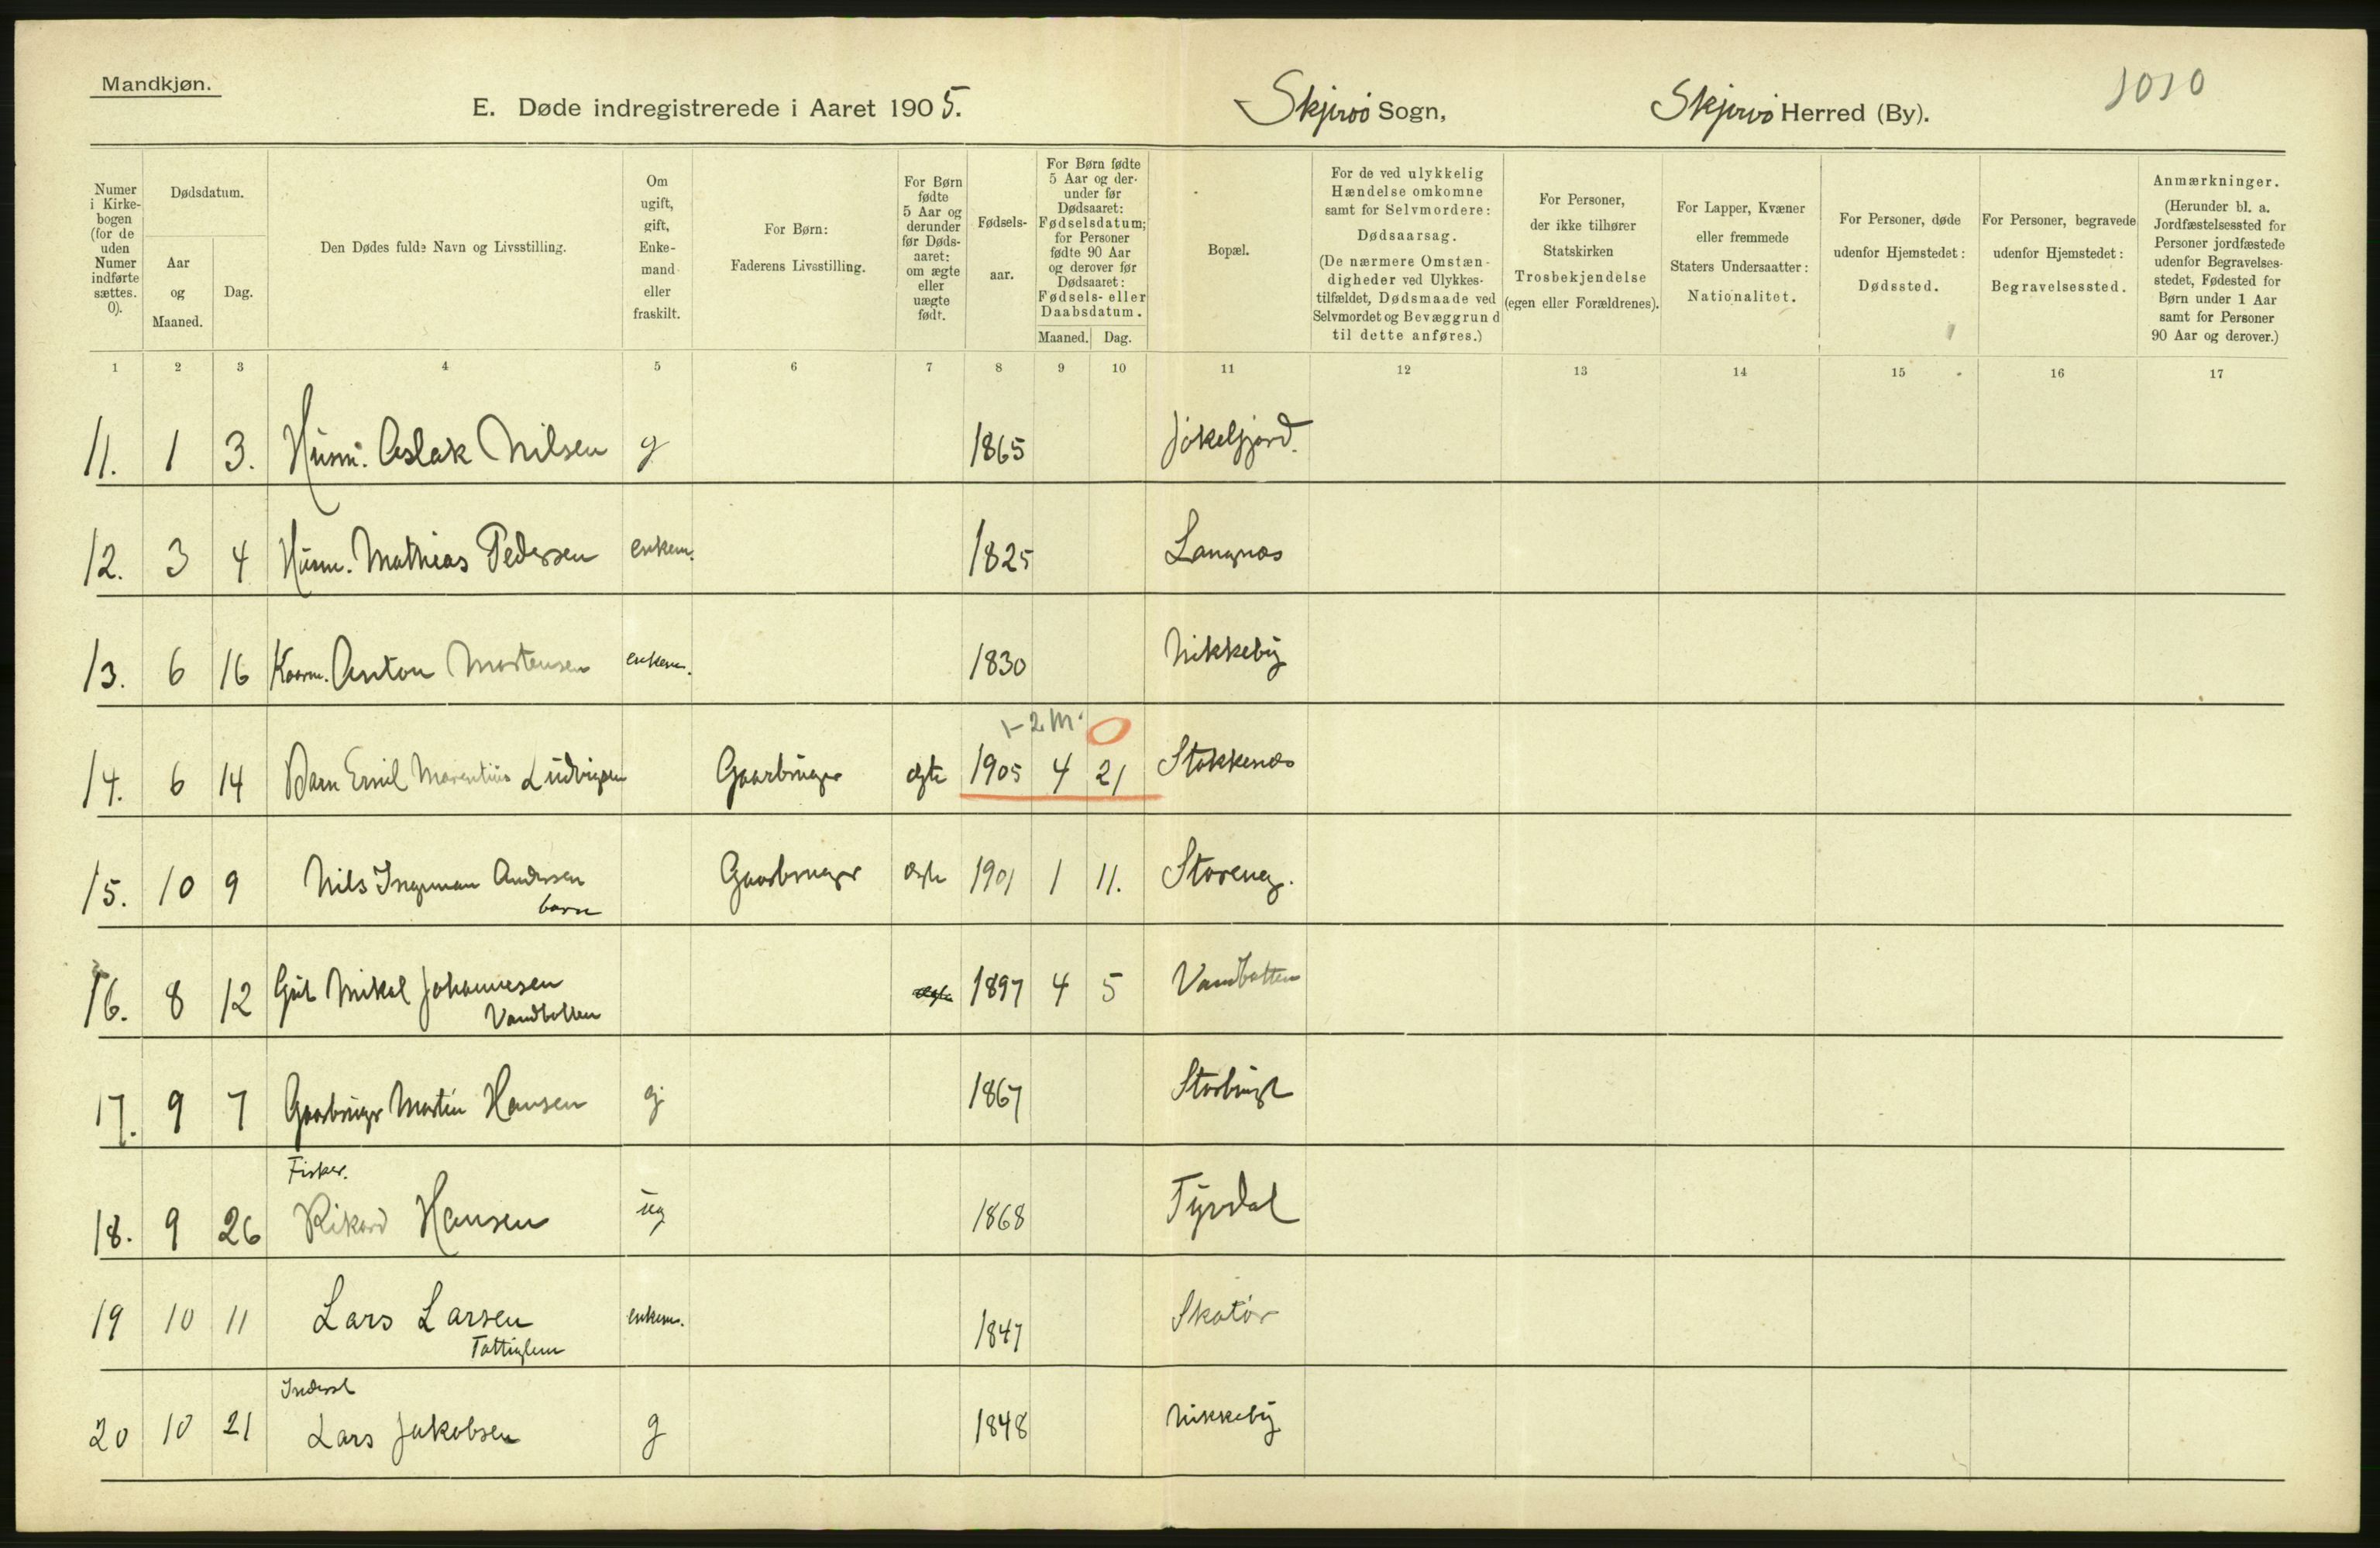 Mandkjøn.
E. Døde indregistrerede i Aaret 1905. Skjervö Sogn, Skjervö Herred (By). 1010
Numer i Kirke-bogen (for de uden Numer indførte sættes. 0).
Dødsdatum.
Aar og Maaned.
Dag.
Den Dødes fulde Navn og Livsstilling.
Om ugift, gift, Enke-mand eller fraskilt.
For Børn:
Faderens Livsstilling.
For Børn fødte 5 Aar og derunder før Døds-aaret: om ægte eller uægte født.
Fødsels-aar.
For Børn fødte 5 Aar og der-under før Dødsaaret: Fødselsdatum; for Personer fødte 90 Aar og derover før Dødsaaret: Fødsels- eller Daabsdatum.
Maaned. Dag.
Bopæl.
For de ved ulykkelig Hændelse omkomne samt for Selvmordere: Dødsaarsag. (De nærmere Omstæn-digheder ved Ulykkes-tilfældet, Dødsmaade ved Selvmordet og Bevæggrund til dette anføres.)
For Personer, der ikke tilhører Statskirken Trosbekjendelse (egen eller Forældrenes).
For Lapper, Kvæner eller fremmede Staters Undersaatter: Nationalitet.
For Personer, døde udenfor Hjemstedet: Dødssted.
For Personer, begravede udenfor Hjemstedet: Begravelsessted.
Anmærkninger. (Herunder bl. a. Jordfæstelsessted for Personer jordfæstede udenfor Begravelses-stedet, Fødested for Børn under 1 Aar samt for Personer 90 Aar og derover.)
1 2 3 4 5 6 7 8 9 10 11 12 13 14 15 16 17
11. 1 3. Husm. Aslak Nilsen g 1865 Jökelfjord.
12. 3 4 Husm. Mathias Pedersen enkem. 1825 Langnæs
13. 6 16 Kaarm. Anton Mortensen enkem. 1830 Nikkeby
1-2 m. 0
14. 6 14 Barn Emil Marentius Ludvigsen Gaardbruger ægte 1905 4 21 Stakkenæs
15. 10 9 Nils Ingvman Andersen Gaardbruger ægte 1901 1 11. Storeng.
barn
16. 8 12 Gut Mikal Johannesen ægte 1897 4 5 Vandbotten
Vandbotten
17. 9 7 Gaardbruger Martin Hansen g 1867 Storbugt
Fisker.
18. 9 26 Rikard Hansen ug 1868 Tyrdal
19 10 11 Lars Larsen enkem. 1847 Skatör
Fattiglem
Inderst
20 10 21 Lars Jakobsen g 1848 Nikkeby